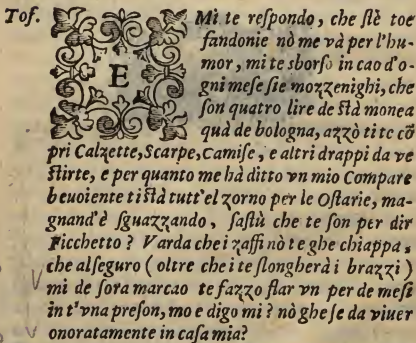 Tof. E Mi te reſpondo, che ſtè toe
fandonie nò me và per l'hu-
mor, mi te sborſo in cao d'o-
gni meſe ſie mozzenighi, che
ſon quatro lire de ſtà monea
quà de bologna, azzò ti te cõ
pri Calzette, Scarpe, Camiſe, e altri drappi da ve
ſtirte, e per quanto me hà ditto vn mio Compare
beuoiente ti ſtà tutt'el zorno per le Oſtarie, ma-
gnand'è ſguazzando, ſaſtù che te ſon per dir
Ficchetto? Varda che i zaffi nò te ghe chiappa,
che alſeguro (oltre che i te ſlongherà i brazzi)
mi de ſora marcao te fazzo ſtar vn per de meſi
in t'vna preſon, mo e digo mi? nò ghe ſe da viuer
onoratamente in caſa mia?